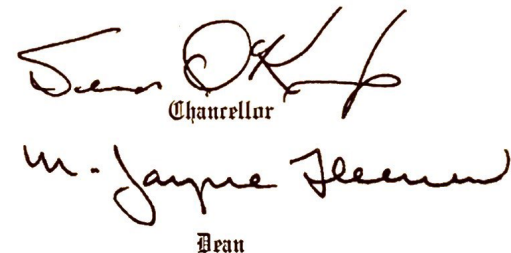 Sean O'K
Chancellor
M. Jayne Fleener
Dean